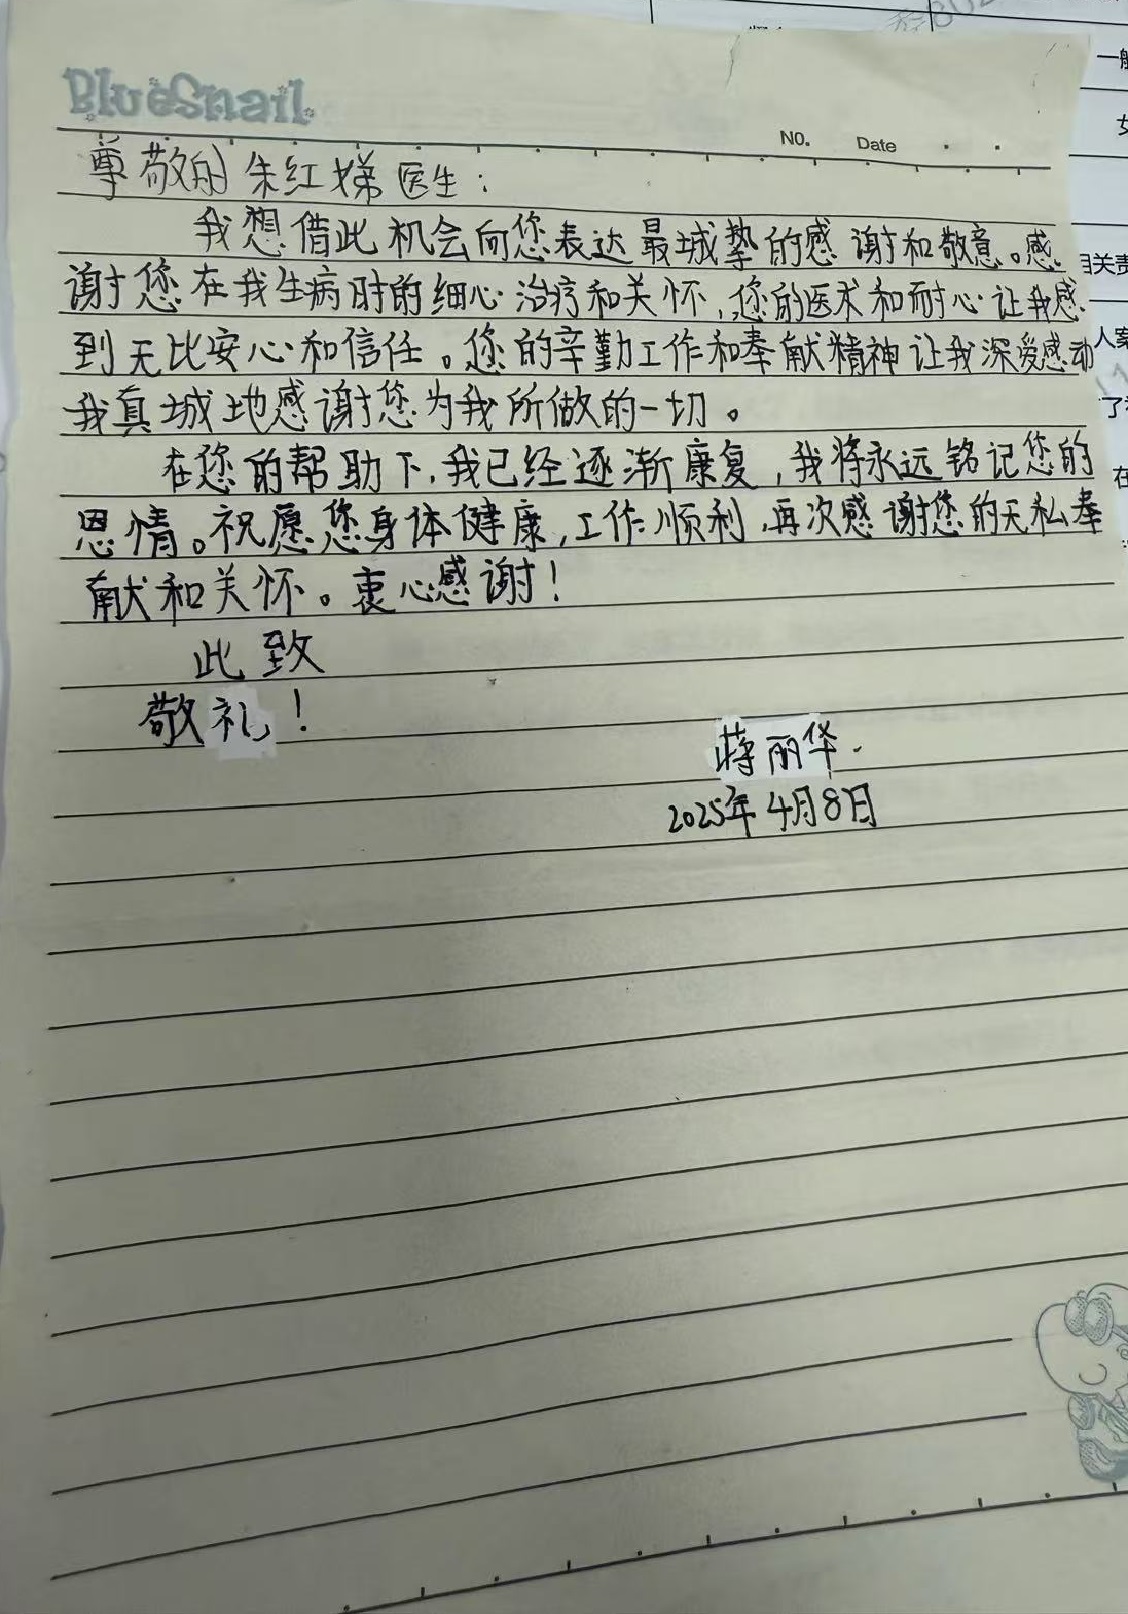 BlueSnail
NO. Date
尊敬的朱红娣医生：
我想借此机会向您表达最城挚的感谢和敬意。感
谢您在我生病时的细心治疗和关怀，您的医术和耐心让我感
到无比安心和信任。您的辛勤工作和奉献精神让我深受感动
我真城地感谢您为我所做的一切。
在您的帮助下，我已经逐渐康复，我将永远铭记您的
恩情。祝愿您身体健康，工作顺利，再次感谢您的无私奉
献和关怀。衷心感谢！
此致
敬礼！
蒋丽华
2025年4月8日
相关责